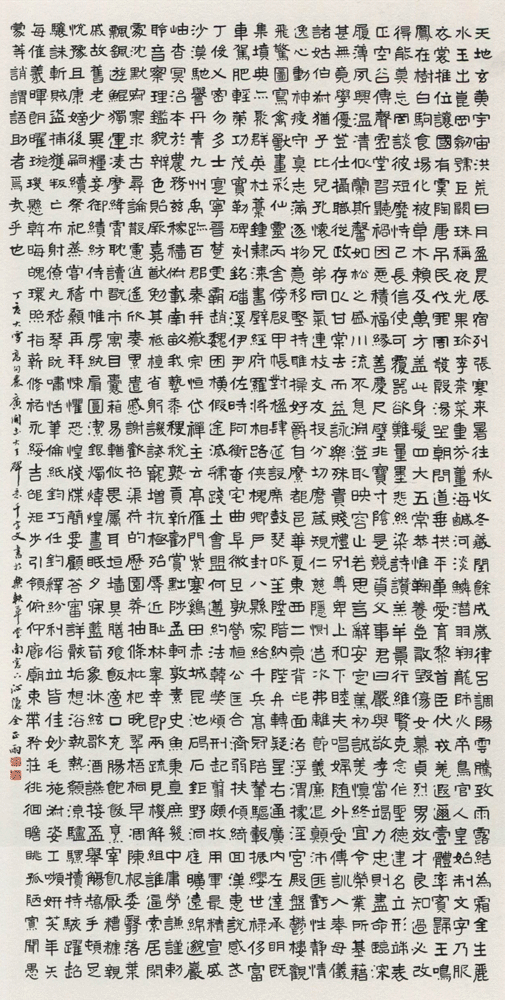 天地玄黃宇宙洪荒日月盈昃辰宿列張寒來暑往秋收冬藏閏餘成歲律呂調陽雲騰致雨露結為霜金生麗
水玉出崑岡劍號巨闕珠稱夜光果珍李柰菜重芥薑海鹹河淡鱗潛羽翔龍師火帝鳥官人皇始制文字乃服
衣裳推位讓國有虞陶唐弔民伐罪周發殷湯坐朝問道垂拱平章愛育黎首臣伏戎羌遐邇壹體率賓歸王鳴
鳳在樹白駒食場化被草木賴及萬方蓋此身髮四大五常恭惟鞠養豈敢毀傷女慕貞烈男效才良知過必改
得能莫忘罔談彼短靡恃己長信使可覆器欲難量墨悲絲染詩讚羔羊景行維賢克念作聖德建名立形端表
正空谷傳聲虛堂習聽禍因惡積福緣善慶尺璧非寶寸陰是競資父事君曰嚴與敬孝當竭力忠則盡命臨深
履薄夙興溫凊似蘭斯馨如松之盛川流不息淵澄取映容止若思言辭安定篤初誠美慎終宜令榮業所基籍
甚無竟學優登仕攝職從政存以甘棠去而益詠樂殊貴賤禮別尊卑上和下睦夫唱婦隨外受傅訓入奉母儀
諸姑伯叔猶子比兒孔懷兄弟同氣連枝交友投分切磨箴規仁慈隱惻造次弗離節義廉退顛沛匪虧性靜情
逸心動神疲守真志滿逐物意移堅持雅操好爵自縻都邑華夏東西二京背邙面洛浮渭據涇宮殿盤鬱樓觀
飛驚圖寫禽獸畫彩仙靈丙舍傍啟甲帳對楹肆筵設席鼓瑟吹笙陞階納陛弁轉疑星右通廣內左達承明既
集墳典亦聚群英杜稾鍾隸漆書壁經府羅將相路俠槐卿戶封八縣家給千兵高冠陪輦驅轂振纓世祿侈富
車駕肥輕策功茂實勒碑刻銘磻溪伊尹佐時阿衡奄宅曲阜微旦孰營桓公匡合濟弱扶傾綺迴漢惠說感武
丁俊乂密勿多士寔寧晉楚更霸趙魏困橫假途滅虢踐土會盟何遵約法韓弊煩刑起翦頗牧用軍最精宣威
沙漠馳譽丹青九州禹跡百郡秦并嶽宗恒岱禪主云亭雁門紫塞雞田赤城昆池碣石鉅野洞庭曠遠綿邈巖
岫杳冥治本於農務茲稼穡俶載南畝我藝黍稷稅熟貢新勸賞黜陟孟軻敦素史魚秉直庶幾中庸勞謙謹敕
聆音察理鑑貌辨色貽厥嘉猷勉其祗植省躬譏誡寵增抗極殆辱近恥林皋幸即兩疏見機解組誰逼索居閑
處沈默寂寥求古尋論散慮逍遙欣奏累遣慼謝歡招渠荷的歷園莽抽條枇杷晚翠梧桐早凋陳根委翳落葉
飄颻遊鯤獨運凌摩絳霄耽讀翫市寓目囊箱易輶攸畏屬耳垣牆具膳飧飯適口充腸飽飫烹宰飢厭糟糠親
戚故舊老少異糧妾御績紡侍巾帷房紈扇圓潔銀燭煒煌晝眠夕寐藍筍象牀絃歌酒讌接杯舉觴矯手頓足
悅豫且康嫡後嗣續祭祀烝嘗稽顙再拜悚懼恐惶牋牒簡要顧答審詳骸垢想浴執熱願涼驢騾犢特駭躍超
驤誅斬賊盜捕獲叛亡布射僚丸嵇琴阮嘯恬筆倫紙鈞巧任釣釋紛利俗並皆佳妙毛施淑姿工嚬妍笑年矢
每催羲暉朗曜璇璣懸斡晦魄環照指薪修祜永綏吉劭矩步引領俯仰廊廟束帶矜莊徘徊瞻眺孤陋寡聞愚
蒙等誚謂語助者焉哉乎也
丁亥大雪